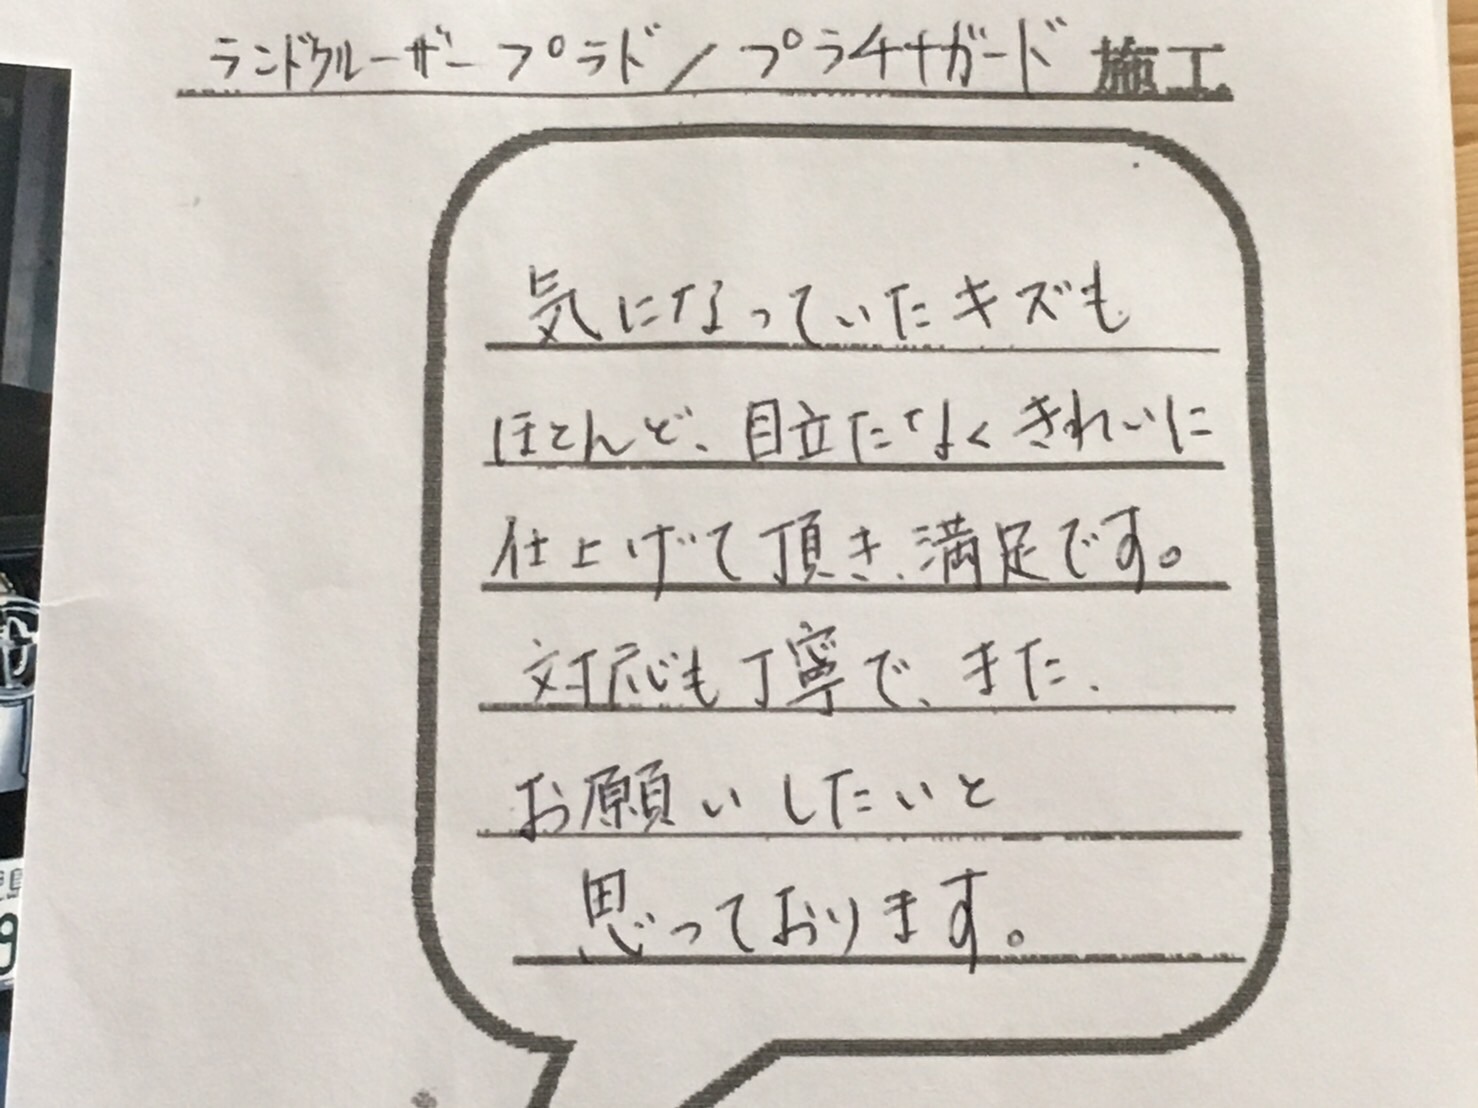 ランドクルーザープラド/プラチナガード 施工
気になっていたキズも
ほとんど、目立たなくきれいに
仕上げて頂き、満足です。
対応も丁寧で、また、
お願いしたいと
思っております。
9